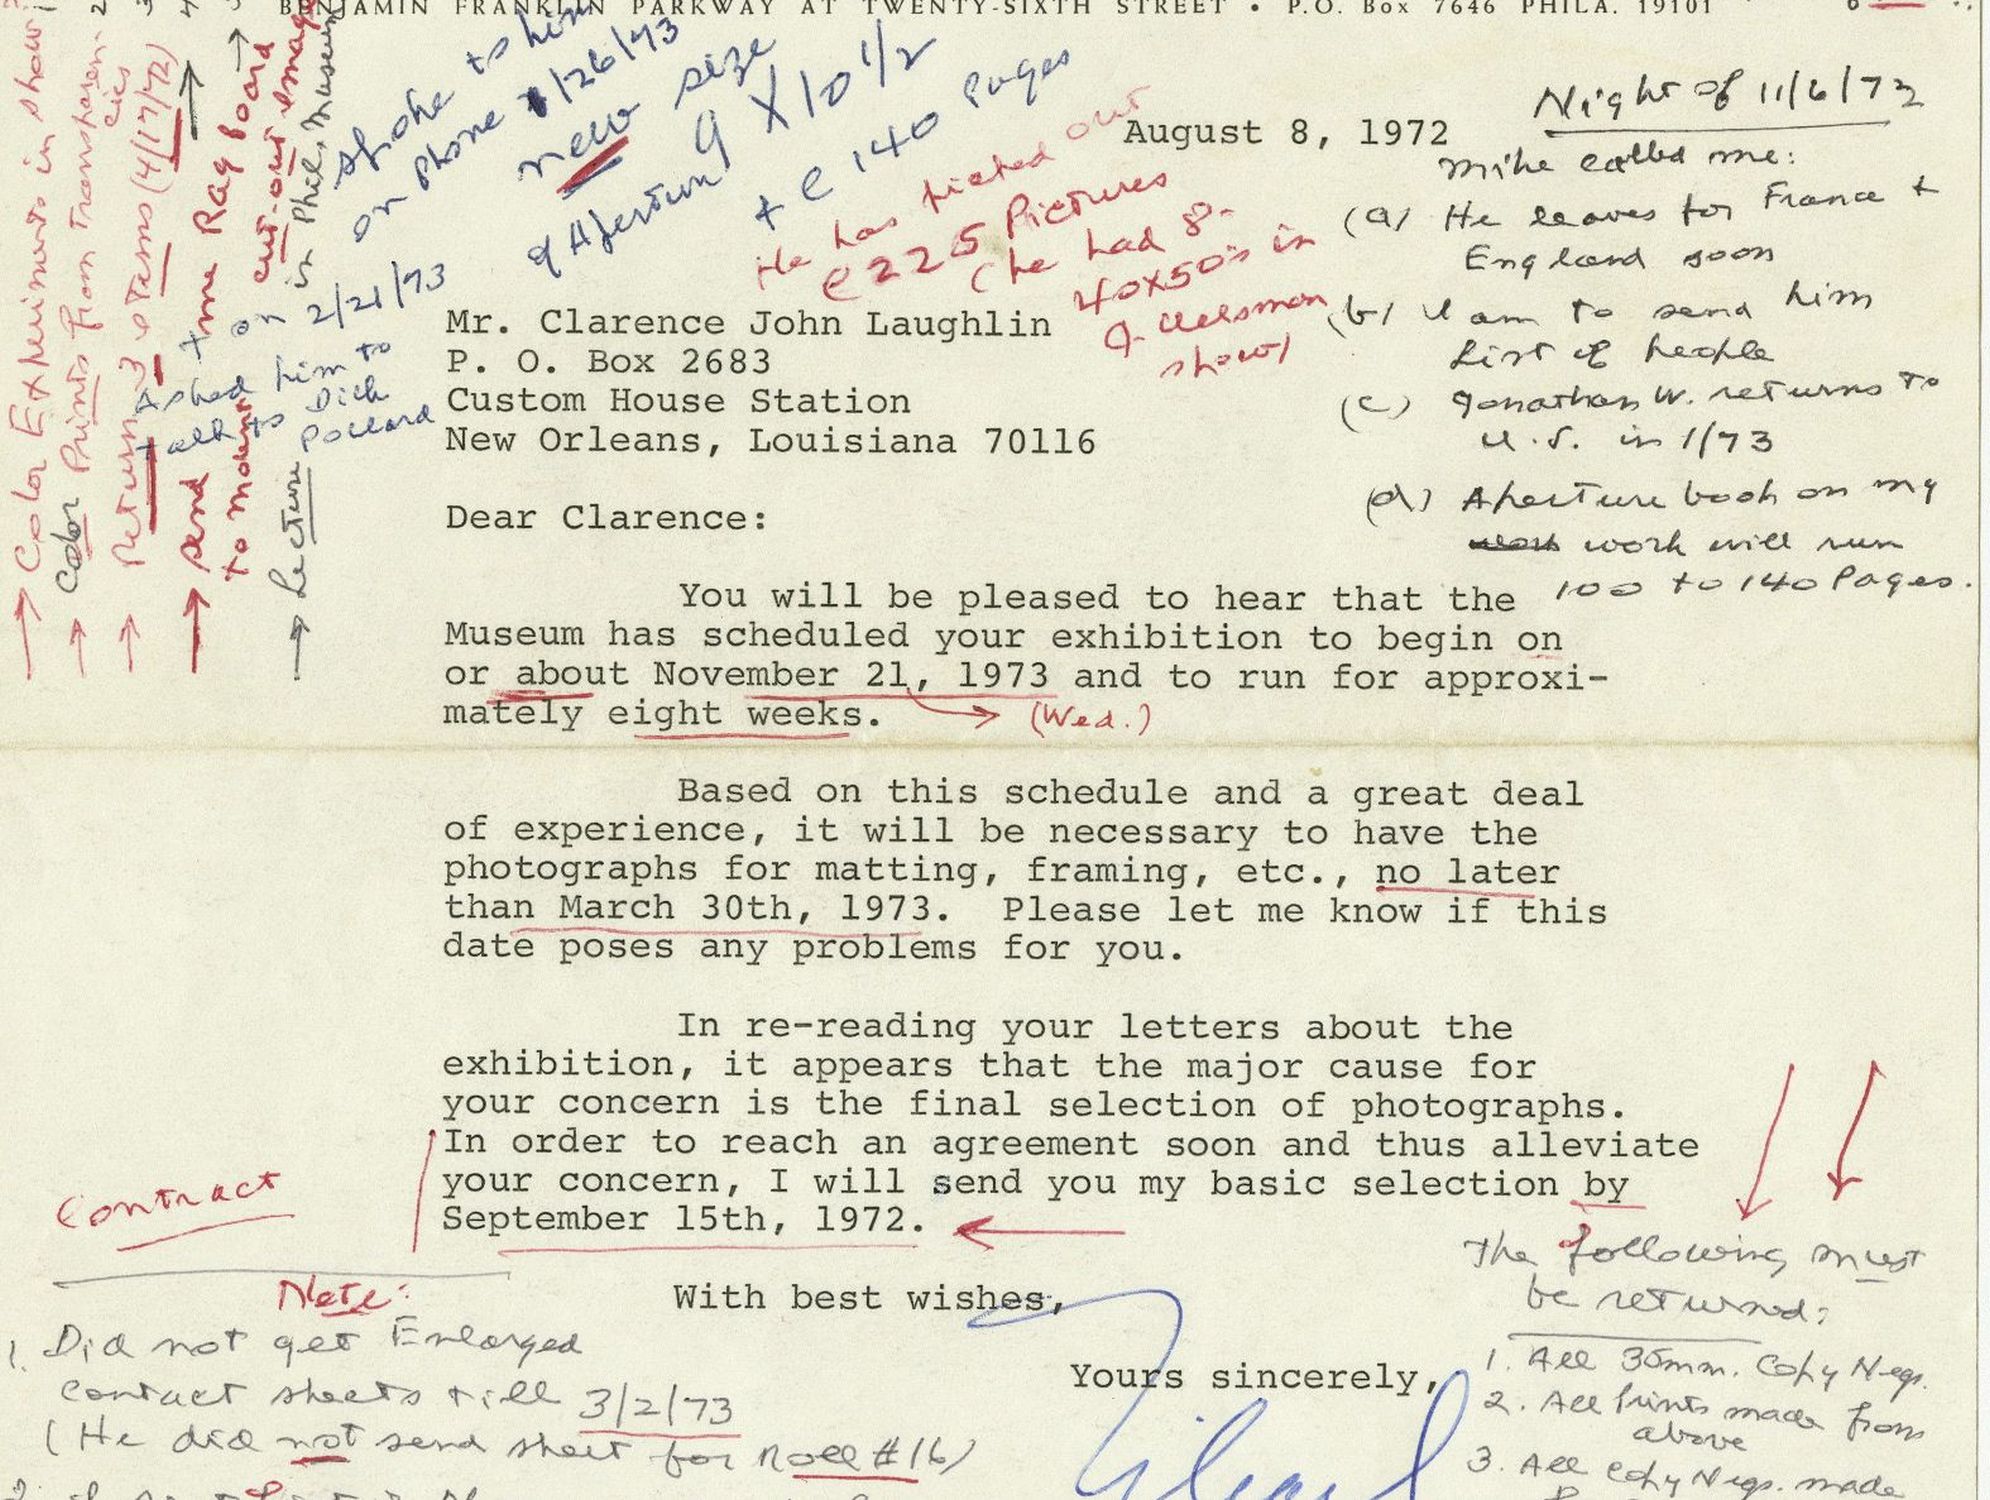 BENJAMIN FRANKLIN PARKWAY AT TWENTY-SIXTH STREET • P.O. Box 7646 PHILA. 19101
Color Experiments in show
Color Prints from transparen-
cies
Return 3 Tams (4/17/72)
send me Rag board
to mount cut-out images
Lecture in Phil. Museum
spoke to him
on phone 1/26/73
new size
of Aperture
9 X 10 1/2
+ c 140 Pages
on 2/21/73
Asked him to
talk to Dick
Pollard
He has picked out
c 225 Pictures
(he had 8-
40x50's in
J. Uelsman
show)
August 8, 1972
Night of 11/6/72
Mike called me:
(a) He leaves for France +
England soon
(b) I am to send him
list of people
(c) Jonathan W. returns to
U.S. in 1/73
(d) Aperture book on my
work will run
100 to 140 Pages.
Mr. Clarence John Laughlin
P. O. Box 2683
Custom House Station
New Orleans, Louisiana 70116
Dear Clarence:
You will be pleased to hear that the
Museum has scheduled your exhibition to begin on
or about November 21, 1973 and to run for approxi-
mately eight weeks.
(Wed.)
Based on this schedule and a great deal
of experience, it will be necessary to have the
photographs for matting, framing, etc., no later
than March 30th, 1973. Please let me know if this
date poses any problems for you.
In re-reading your letters about the
exhibition, it appears that the major cause for
your concern is the final selection of photographs.
In order to reach an agreement soon and thus alleviate
your concern, I will send you my basic selection by
September 15th, 1972.
Contract
With best wishes,
Yours sincerely,
Note:
1. Did not get Enlarged
contact sheets till 3/2/73
(He did not send sheet for Roll #16)
The following must
be returned:
1. All 35mm. Copy Negs.
2. All Prints made from
above
3. All Copy Negs. made